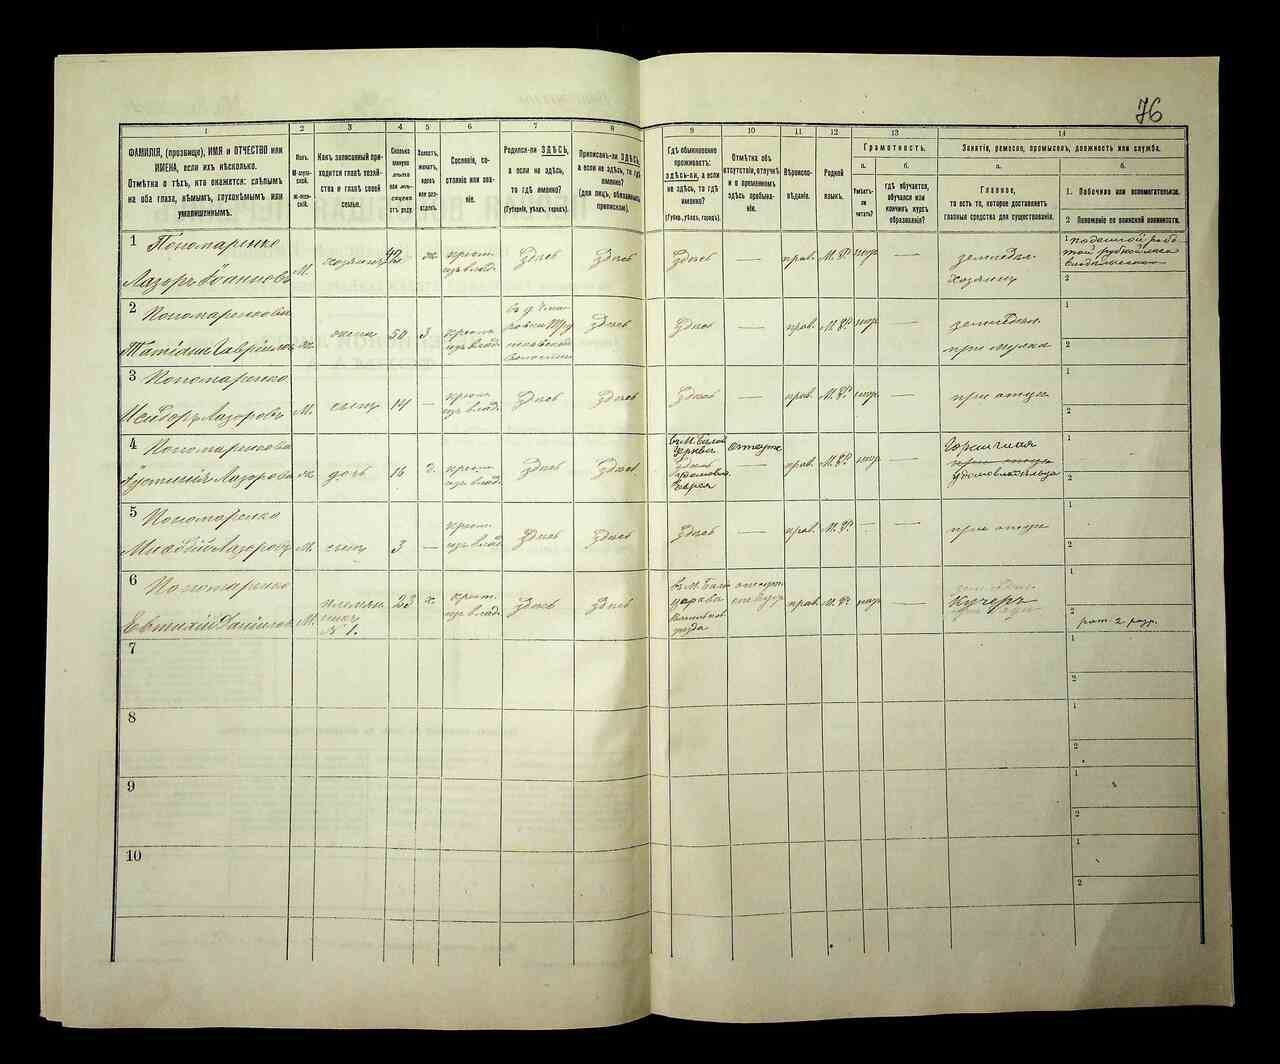 76
1
2
3
4
5
6
7
8
9
10
11
12
13
14
ФАМИЛІЯ, (прозвище), ИМЯ и ОТЧЕСТВО или
ИМЕНА, если ихъ нѣсколько.
Отмѣтка о тѣхъ, кто окажется: слѣпымъ
на оба глаза, нѣмымъ, глухонѣмымъ или
умалишеннымъ.
Полъ.
М-мужской.
Ж-женской.
Какъ записанный приходится главѣ хозяйства и главѣ своей
семьи.
Сколько
минуло
лѣтъ
отъ роду.
Холостъ,
женатъ,
вдовъ
или разведенъ.
Сословіе, состояніе или званіе.
Родился-ли ЗДѢСЬ,
а если не здѣсь,
то гдѣ именно?
(Губернія, уѣздъ, городъ).
Приписанъ-ли ЗДѢСЬ,
а если не здѣсь, то гдѣ
именно?
(для лицъ, обязанныхъ
припиской).
Гдѣ обыкновенно
проживаетъ:
здѣсь-ли, а если
не здѣсь, то гдѣ
именно?
(Губер., уѣздъ, городъ).
Отмѣтка объ
отсутствіи, отлучкѣ
и о временномъ
здѣсь пребываніи.
Вѣроисповѣданіе.
Родной
языкъ.
Грамотность.
а.
Умѣетъ-ли
читать?
б.
гдѣ обучается,
обучался или
кончилъ курсъ
образованія?
Занятіе, ремесло, промыселъ, должность или служба.
а.
Главное,
то есть то, которое доставляетъ
главныя средства для существованія.
б.
1. Побочное или вспомогательное.
2 Положеніе по воинской повинности.
1 Пономаренко
Лазоръ Іоанновъ М. хозяинъ 42 ж крест. изъ влад. Здѣсь Здѣсь Здѣсь — прав. М. Р. нѣтъ — земледѣл. хозяинъ
2 Пономаренкова
Татіана Гавріилова ж жена 50 з крест. изъ влад. Здѣсь Здѣсь — прав. М. Р. нѣтъ — земледѣл. при мужѣ
3 Пономаренко
Исидоръ Лазоровъ М. сынъ 14 — крест. изъ влад. Здѣсь Здѣсь Здѣсь — прав. М. Р. нѣтъ — при отцѣ
4 Пономаренкова
Іустинія Лазорова ж дочь 16 крест. изъ влад. Здѣсь Здѣсь въ М. Бѣлой Церкви прав. М. Р. нѣтъ — Горничная при отцѣ у домовладѣльца
5 Пономаренко
Лазоровъ М. сынъ 3 — крест. изъ влад. Здѣсь Здѣсь Здѣсь — прав. М. Р. — — при отцѣ
6 Пономаренко
Евтихій М. племянникъ № 1. 23 х крест. изъ влад. Здѣсь Здѣсь въ М. Бѣла Церква уѣзда прав. М. Р. нѣтъ — Кучеръ
рат. 2 разр.
7
8
9
10